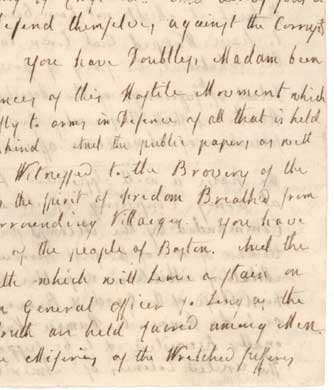 defend themselves, against the Corrupt
You have Doubtless, Madam been
nces of this Hostile Movement which
fly to arms in Defence of all that is held
nkind. And the public papers, as well
Witnessed to the Bravery of the
the Spirit of freedom Breathed from
rrounding Villages: you have
of the people of Boston. And the
which will Leave a stain on
General officer so Long as the
are held Sacred among Men.
Miseries of the Wretched